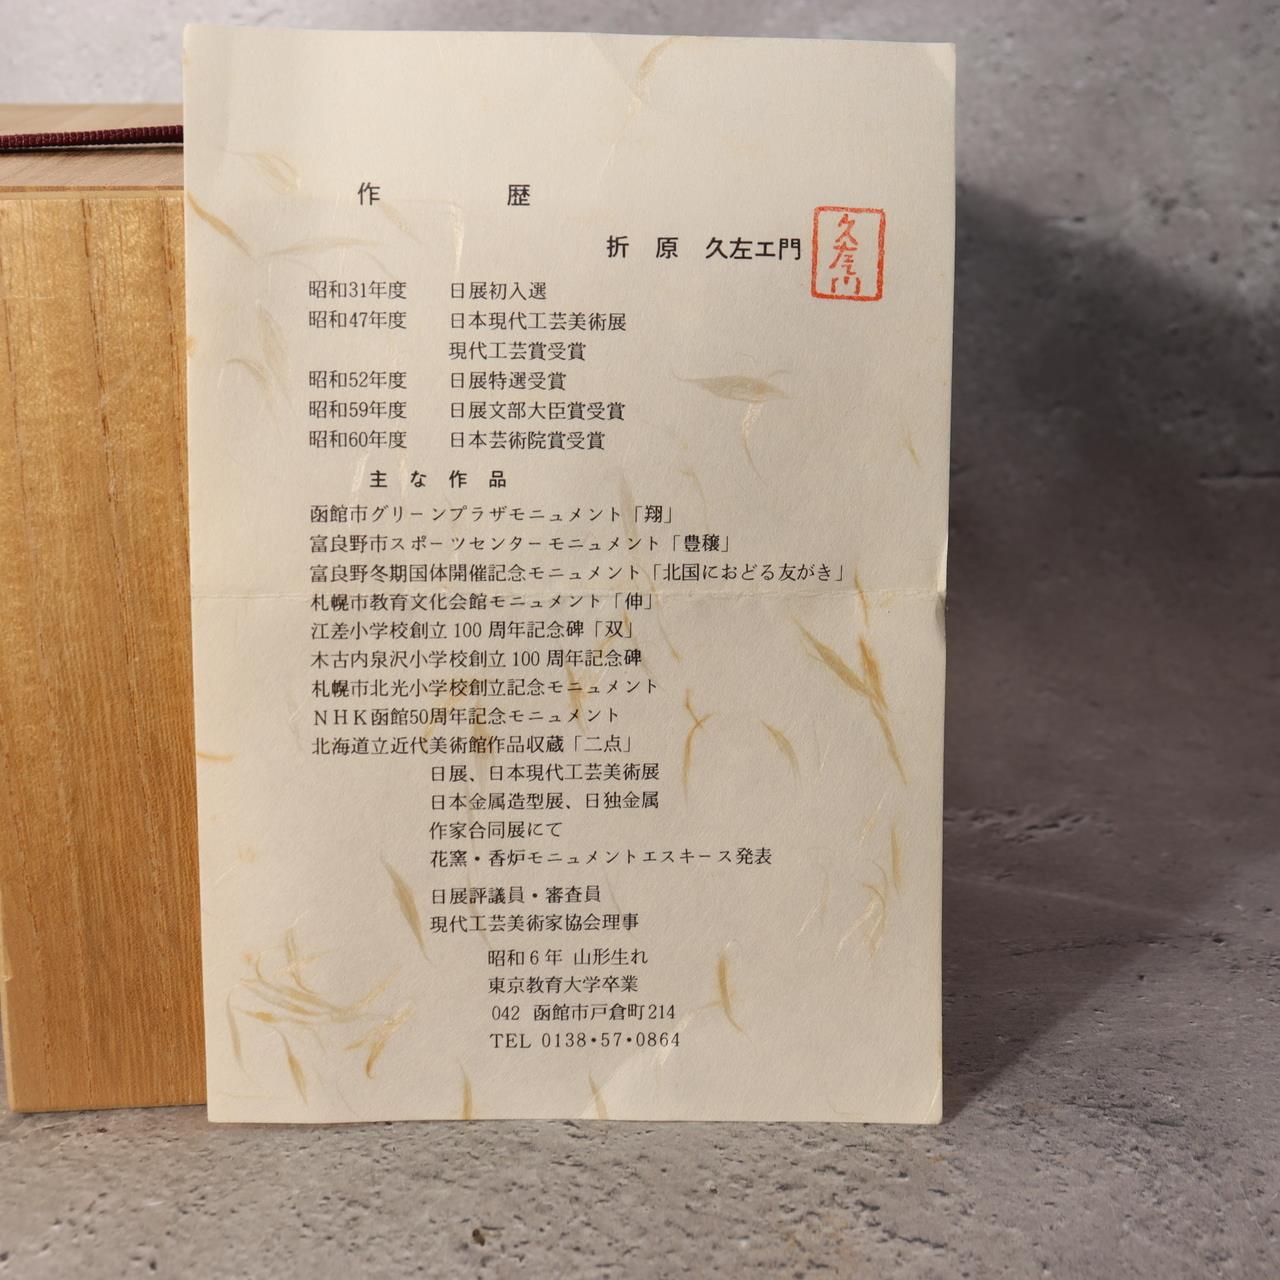 作 歴
折原 久左エ門
久左エ門
昭和31年度 日展初入選
昭和47年度 日本現代工芸美術展
現代工芸賞受賞
昭和52年度 日展特選受賞
昭和59年度 日展文部大臣賞受賞
昭和60年度 日本芸術院賞受賞
主な作品
函館市グリーンプラザモニュメント「翔」
富良野市スポーツセンターモニュメント「豊穣」
富良野冬期国体開催記念モニュメント「北国におどる友がき」
札幌市教育文化会館モニュメント「伸」
江差小学校創立100周年記念碑「双」
木古内泉沢小学校創立100周年記念碑
札幌市北光小学校創立記念モニュメント
NHK函館50周年記念モニュメント
北海道立近代美術館作品収蔵「二点」
日展、日本現代工芸美術展
日本金属造型展、日独金属
作家合同展にて
花窯・香炉モニュメントエスキース発表
日展評議員・審査員
現代工芸美術家協会理事
昭和6年 山形生れ
東京教育大学卒業
042 函館市戸倉町214
TEL 0138・57・0864